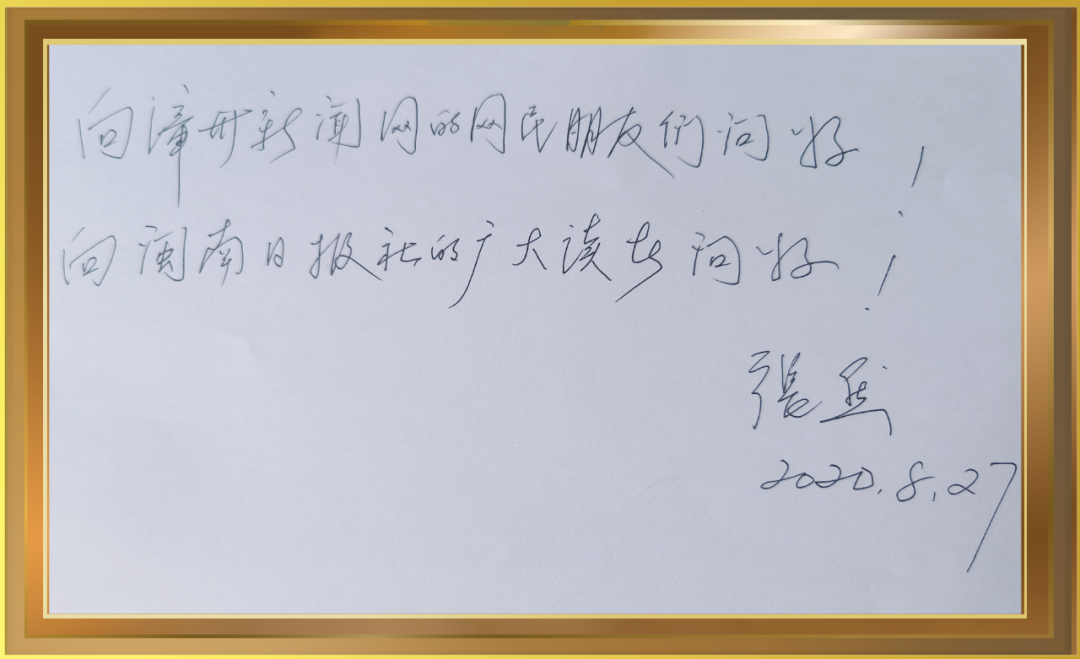 向漳州新闻网的网民朋友们问好！
向闽南日报社的广大读者问好！
張
2020.8.27